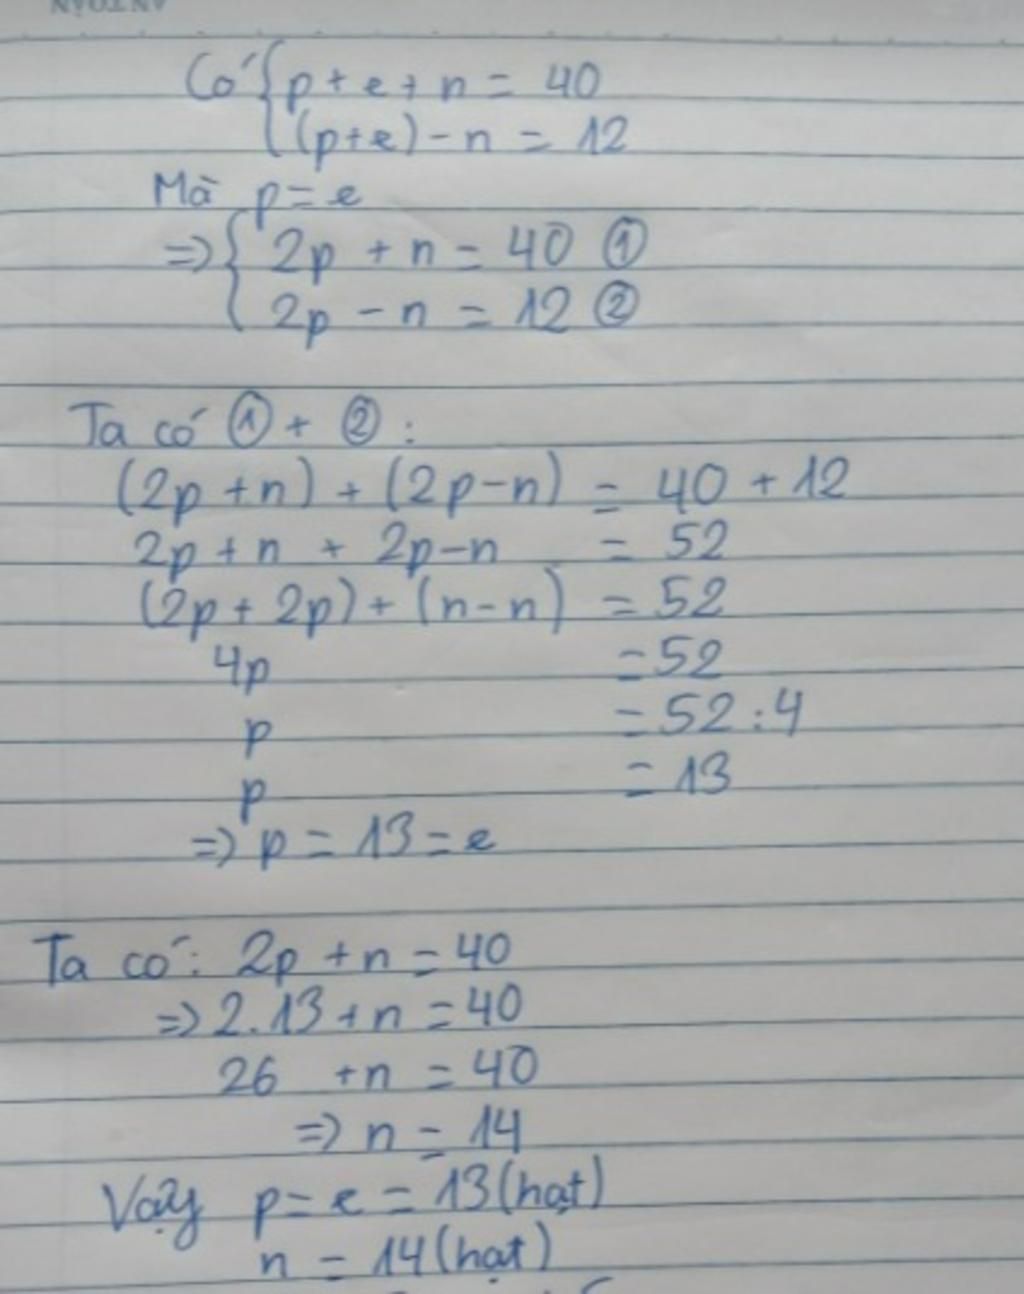 Có { p + e + n = 40
(p+e) - n = 12
Mà p = e
=> { 2p + n = 40 ①
2p - n = 12 ②
Ta có ① + ② :
(2p + n) + (2p - n) = 40 + 12
2p + n + 2p - n = 52
(2p + 2p) + (n - n) = 52
4p = 52
p = 52 : 4
p = 13
=> p = 13 = e
Ta có: 2p + n = 40
=> 2.13 + n = 40
26 + n = 40
=> n = 14
Vậy p = e = 13 (hạt)
n = 14 (hạt)